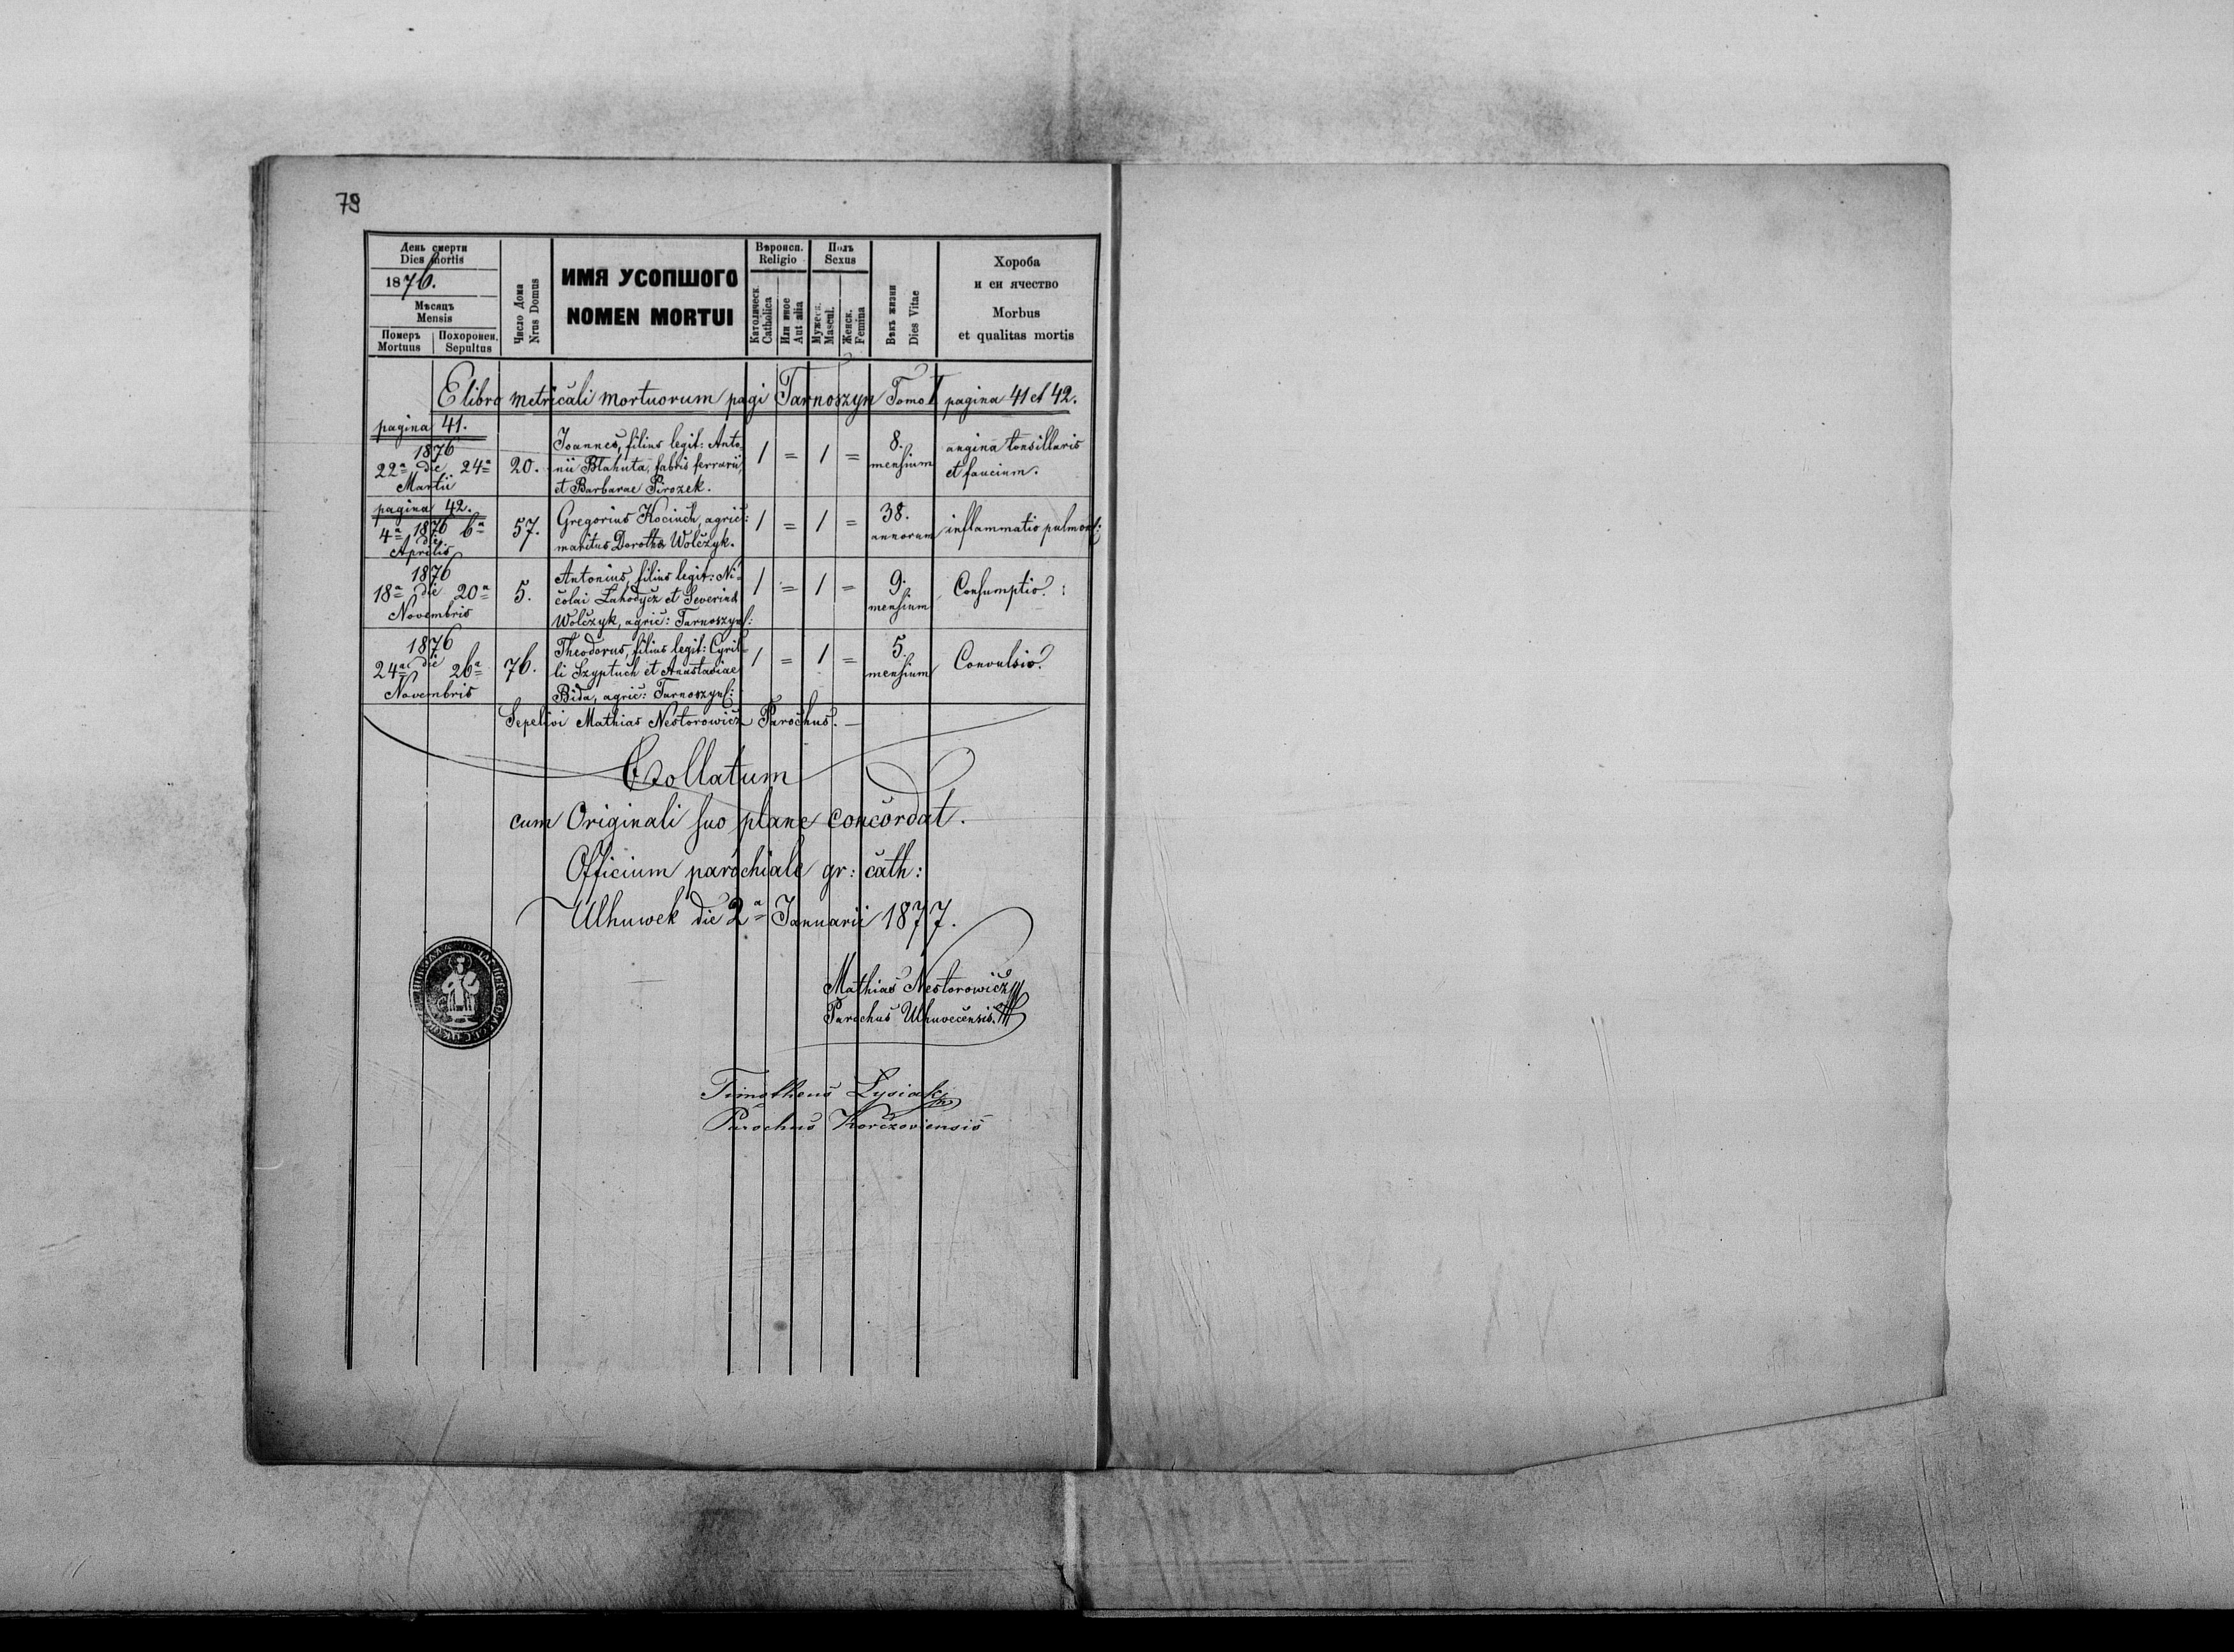 79
День смерти
Dies mortis
1876.
Мѣсяць
Mensis
Померъ Похоронен.
Mortuus Sepultus
Число Дома
Nrus Domus
ИМЯ УСОПШОГО
NOMEN MORTUI
Вѣроисп.
Religio
Католическ.
Catholica
Или иное
Aut alia
Полъ
Sexus
Мужеск.
Mascul.
Женск.
Femina
Вѣкъ жизни
Dies Vitae
Хороба
и еи ячество
Morbus
et qualitas mortis
E libro metricali mortuorum pagi Tarnoszyn Tomo I pagina 41 et 42.
pagina 41.
1876
22ª die 24ª
Martii
20.
Joannes, filius legit: Anto
nii Blahuta, fabris ferrarii,
et Barbarae Pirozek.
1 = 1 =
8.
mensium
angina tonsillaris
et faucium.
pagina 42.
4ª 1876 6ª
die
Aprilis
57.
Gregorius Kociuch, agric:
maritus Dorothea Wolczyk.
1 = 1 =
38.
annorum
inflammatio pulmon:
1876
18ª die 20ª
Novembris
5.
Antonius, filius legit: Ni=
colai Lahodycz et Severinae
Wolczyk, agric: Tarnoszyns:
1 = 1 =
9.
mensium
Consumptio.
1876
24ª die 26ª
Novembris
76.
Theodorus, filius legit: Cyril=
li Szyptuch et Anastasiae
Bida, agric: Tarnoszyns:
1 = 1 =
5.
mensium
Convulsio.
Sepelivi Mathias Nestorowicz Parochus.
Collatum
cum Originali suo plane concordat.
Officium parochiale gr: cath:
Ulhuwek die 2ª Januarii 1877.
Mathias Nestorowicz
Parochus Ulhuvecensis.
Timotheus Lysiak
Parochus Korczoviensis